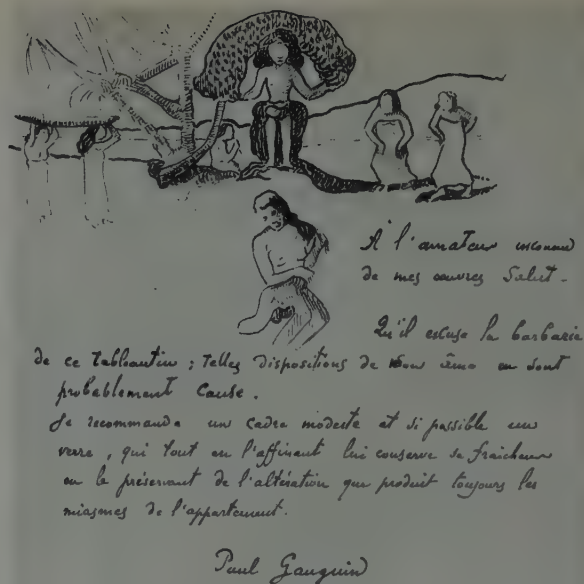 À l'amateur inconnu
de mes œuvres Salut -
Qu'il excuse la barbarie
de ce tableautin ; telles dispositions de mon âme en sont
probablement cause.
Je recommande un cadre modeste et si possible un
verre, qui tout en l'affinant lui conserve sa fraicheur
en le préservant de l'altération que produit toujours les
miasmes de l'appartement.
Paul Gauguin